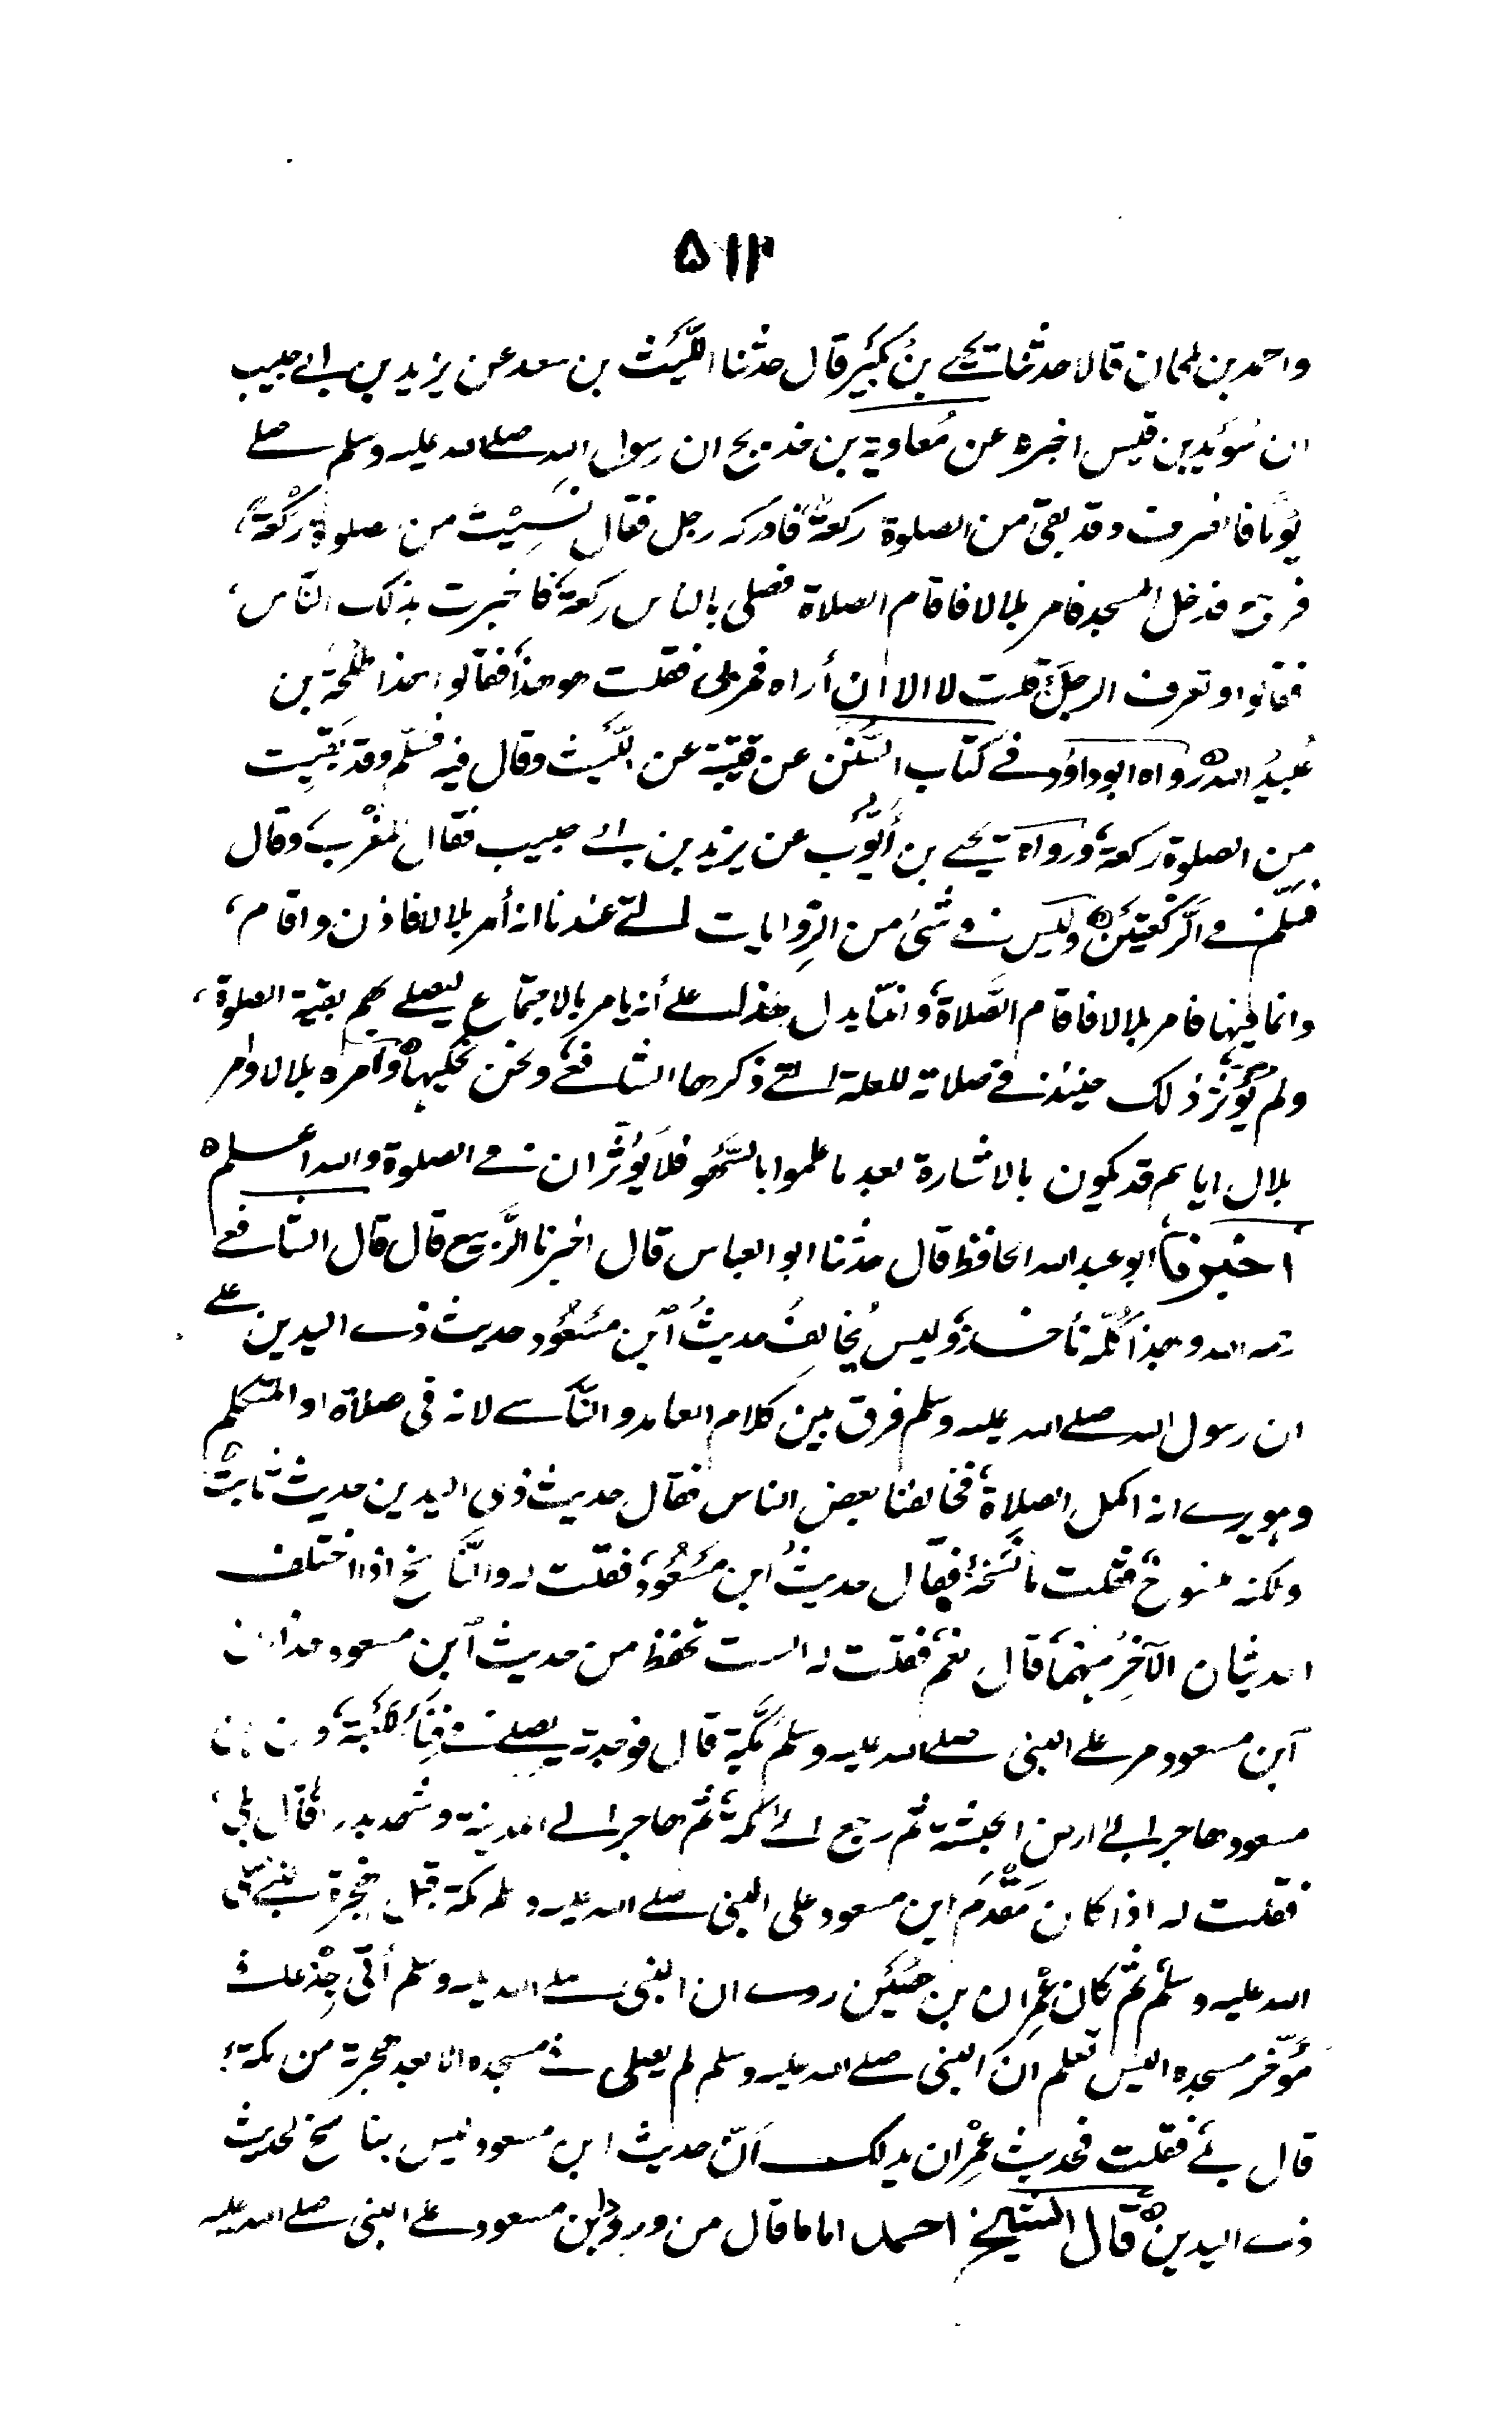 ٥١٢
واحمد بن ملحان قالا حدثنا يحي بنُ بُكَيْر قال حدثنا اللَّيْث بن سعد عن يزيد بن ابے حبيب
ان سُوَيْد بن قيس اخبره عن مُعاوية بن خديج ان رسول الله صلے الله عليه وسلم صلے
يَوْمًا فانصرف وقد بقي من الصلوة ركعةٌ فادركه رجل فقال نَسِيْتَ من صلوة ركْعَةً،
فرجع فدخل المسجد فامر بلالا فاقام الصلاة فصلى بالناس ركعةً فاخبرت بذلك النَّاس،
فقالوا وتعرف الرجلَ قلت لا الا ان أراه فمر بی فقلت هو هذا فقالوا هذا طَلْحَةُ بن
عُبيدُ الله ٥ رواه ابوداؤد فے كتاب السُّنَن عن قتيبة عن اللَّيْث وقال فيه فسَلَّم وقد بَقِيَت
من الصلوة ركعةٌ ورواه يحے بن أيُّوب عن يزيد بن ابے حبيب فقال المَغْرب وقال
فسَلَّم فے الرَّكْعَتَيْن ٥ وليس فے شئ من الرِّوايات التے عندنا انه أمر بلالا فاذن واقام،
وانما فيها فامر بلالا فاقام الصَّلاة، وانما يدل هذا علے أنه يامر بالاجتماع ليصلے بهم بقية الصلوة،
ولم يُؤثر ذلك حينئذ فے صلاته للعلة التے ذكرها الشافعے، ونحن نحكيها ٥ وأمره بلالا وامر
بلال اياهم قد يكون بالاشارة بعد ما علموا بالسَّهْو فلا يُؤثران فے الصلوة والله اعلم ٥
اخبرنا ابو عبد الله الحافظ قال حدثنا ابو العباس قال اخبرنا الرَّبيع قال قال الشافعے
رحمه الله وبهذا كُلّه نأخذ، وليس يُخالِفُ حديثُ ابن مَسْعُود حديث ذے اليدين علے
ان رسول الله صلے الله عليه وسلم فرق بين كلام العامد والنَّاسے لانه فی صلاة او المتكلم
وهو يرے انه اكمل الصلاة، فخالفنا بعض الناس فقال حديث ذی اليدين حديث ثابتٌ
ولكنه منسوخ، فقلت ما نَسَخَهُ، فقال حديثُ ابن مَسْعُود، فقلت له والنَّاسخ اذا اختلف
الحديثان الآخِرُ منهما، قال نعم، فقلت له الست تحفظ من حديث ابن مسعود هذا ان
ابن مسعود مر علے النبی صلے الله عليه وسلم بمَكَّة قال فوجدته يصلے فے فِنَاء الكَعْبَة، وان ابن
مسعود هاجر الے ارض الحبشة ثم رجع الے مكة، ثم هاجر الے المدينة وشهد بدرا، قال بلی،
فقلت له اذا كان مَقْدَم ابن مسعود علی النبی صلے الله عليه وسلم مكة قبل هجرة النبے صلی
الله عليه وسلم ثم كان عِمْران بن حُصَيْن روے ان النبی صلے الله عليه وسلم أتی جِذْعا فے
مُؤَخَّر مسجده اليس تعلم ان النبی صلے الله عليه وسلم لم يصلی فے مسجده الا بعد هجرته من مكة،
قال بلے فقلت فحديث عِمْران يدلك انّ حديث ابن مسعود ليس بناسخ لحديث
ذے اليدين ٥ قال الشيخ احمد اما ما قال من ورود ابن مسعود علے النبی صلے الله عليه